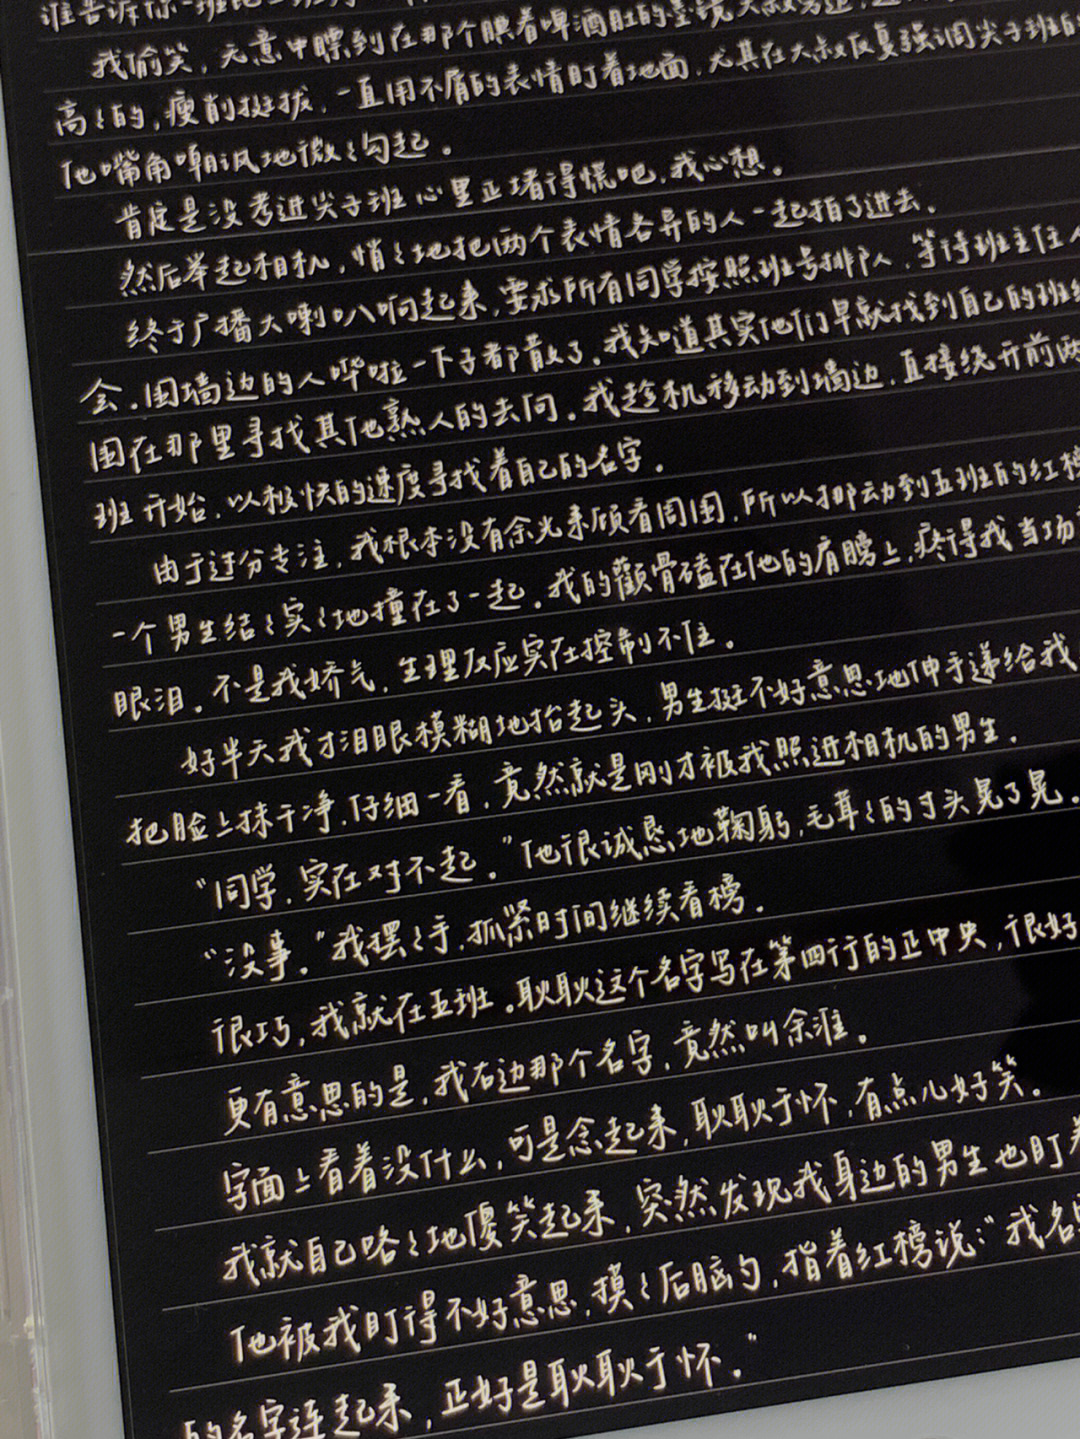 谁告诉你一班比二班
我偷笑，无意中瞟到在那个腆着啤酒肚的
高〻的，瘦削挺拔，一直用不屑的表情盯着地面，尤其在大叔反复强调尖子班的
他嘴角嘲讽地微〻勾起。
肯定是没考进尖子班心里正堵得慌吧，我心想。
然后举起相机，悄〻地把两个表情各异的人一起拍了进去。
终于广播大喇叭响起来，要求所有同学按照班号排队，等待班主任
会。围墙边的人哗啦一下子都散了。我知道其实他们早就找到自己的班级
围在那里寻找其他熟人的去向。我趁机移动到墙边，直接绕开前两
班开始，以极快的速度寻找着自己的名字。
由于过分专注，我根本没有余光来顾看周围，所以挪动到五班的红榜
一个男生结〻实〻地撞在了一起。我的颧骨磕在他的肩膀上，疼得我当场
眼泪。不是我娇气，生理反应实在控制不住。
好半天我才泪眼模糊地抬起头，男生挺不好意思地伸手递给我
把脸上抹干净，仔细一看，竟然就是刚才被我照进相机的男生。
“同学，实在对不起。”他很诚恳地鞠躬，毛茸〻的寸头晃了晃。
“没事。”我摆〻手，抓紧时间继续看榜。
很巧，我就在五班。耿耿这个名字写在第四行的正中央，很好
更有意思的是，我右边那个名字，竟然叫余淮。
字面上看着没什么，可是念起来，耿耿于怀，有点儿好笑。
我就自己咯〻地傻笑起来，突然发现我身边的男生也盯着
他被我盯得不好意思，摸〻后脑勺，指着红榜说：“我名
的名字连起来，正好是耿耿于怀。”